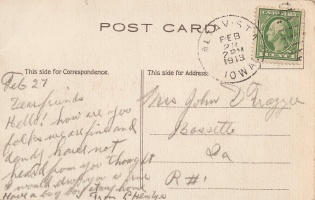 POST CARD
ALTA VISTA
FEB
2 PM
1913
IOWA
This side for Correspondence.
This side for Address.
Feb 27
Dear friends
Hello! how are you
folks we are fine and
dandy have not
heard from you thought
I would drop you a line
Have a big
home
From
Mrs John D Frazer
Bassett
Ia
R #1